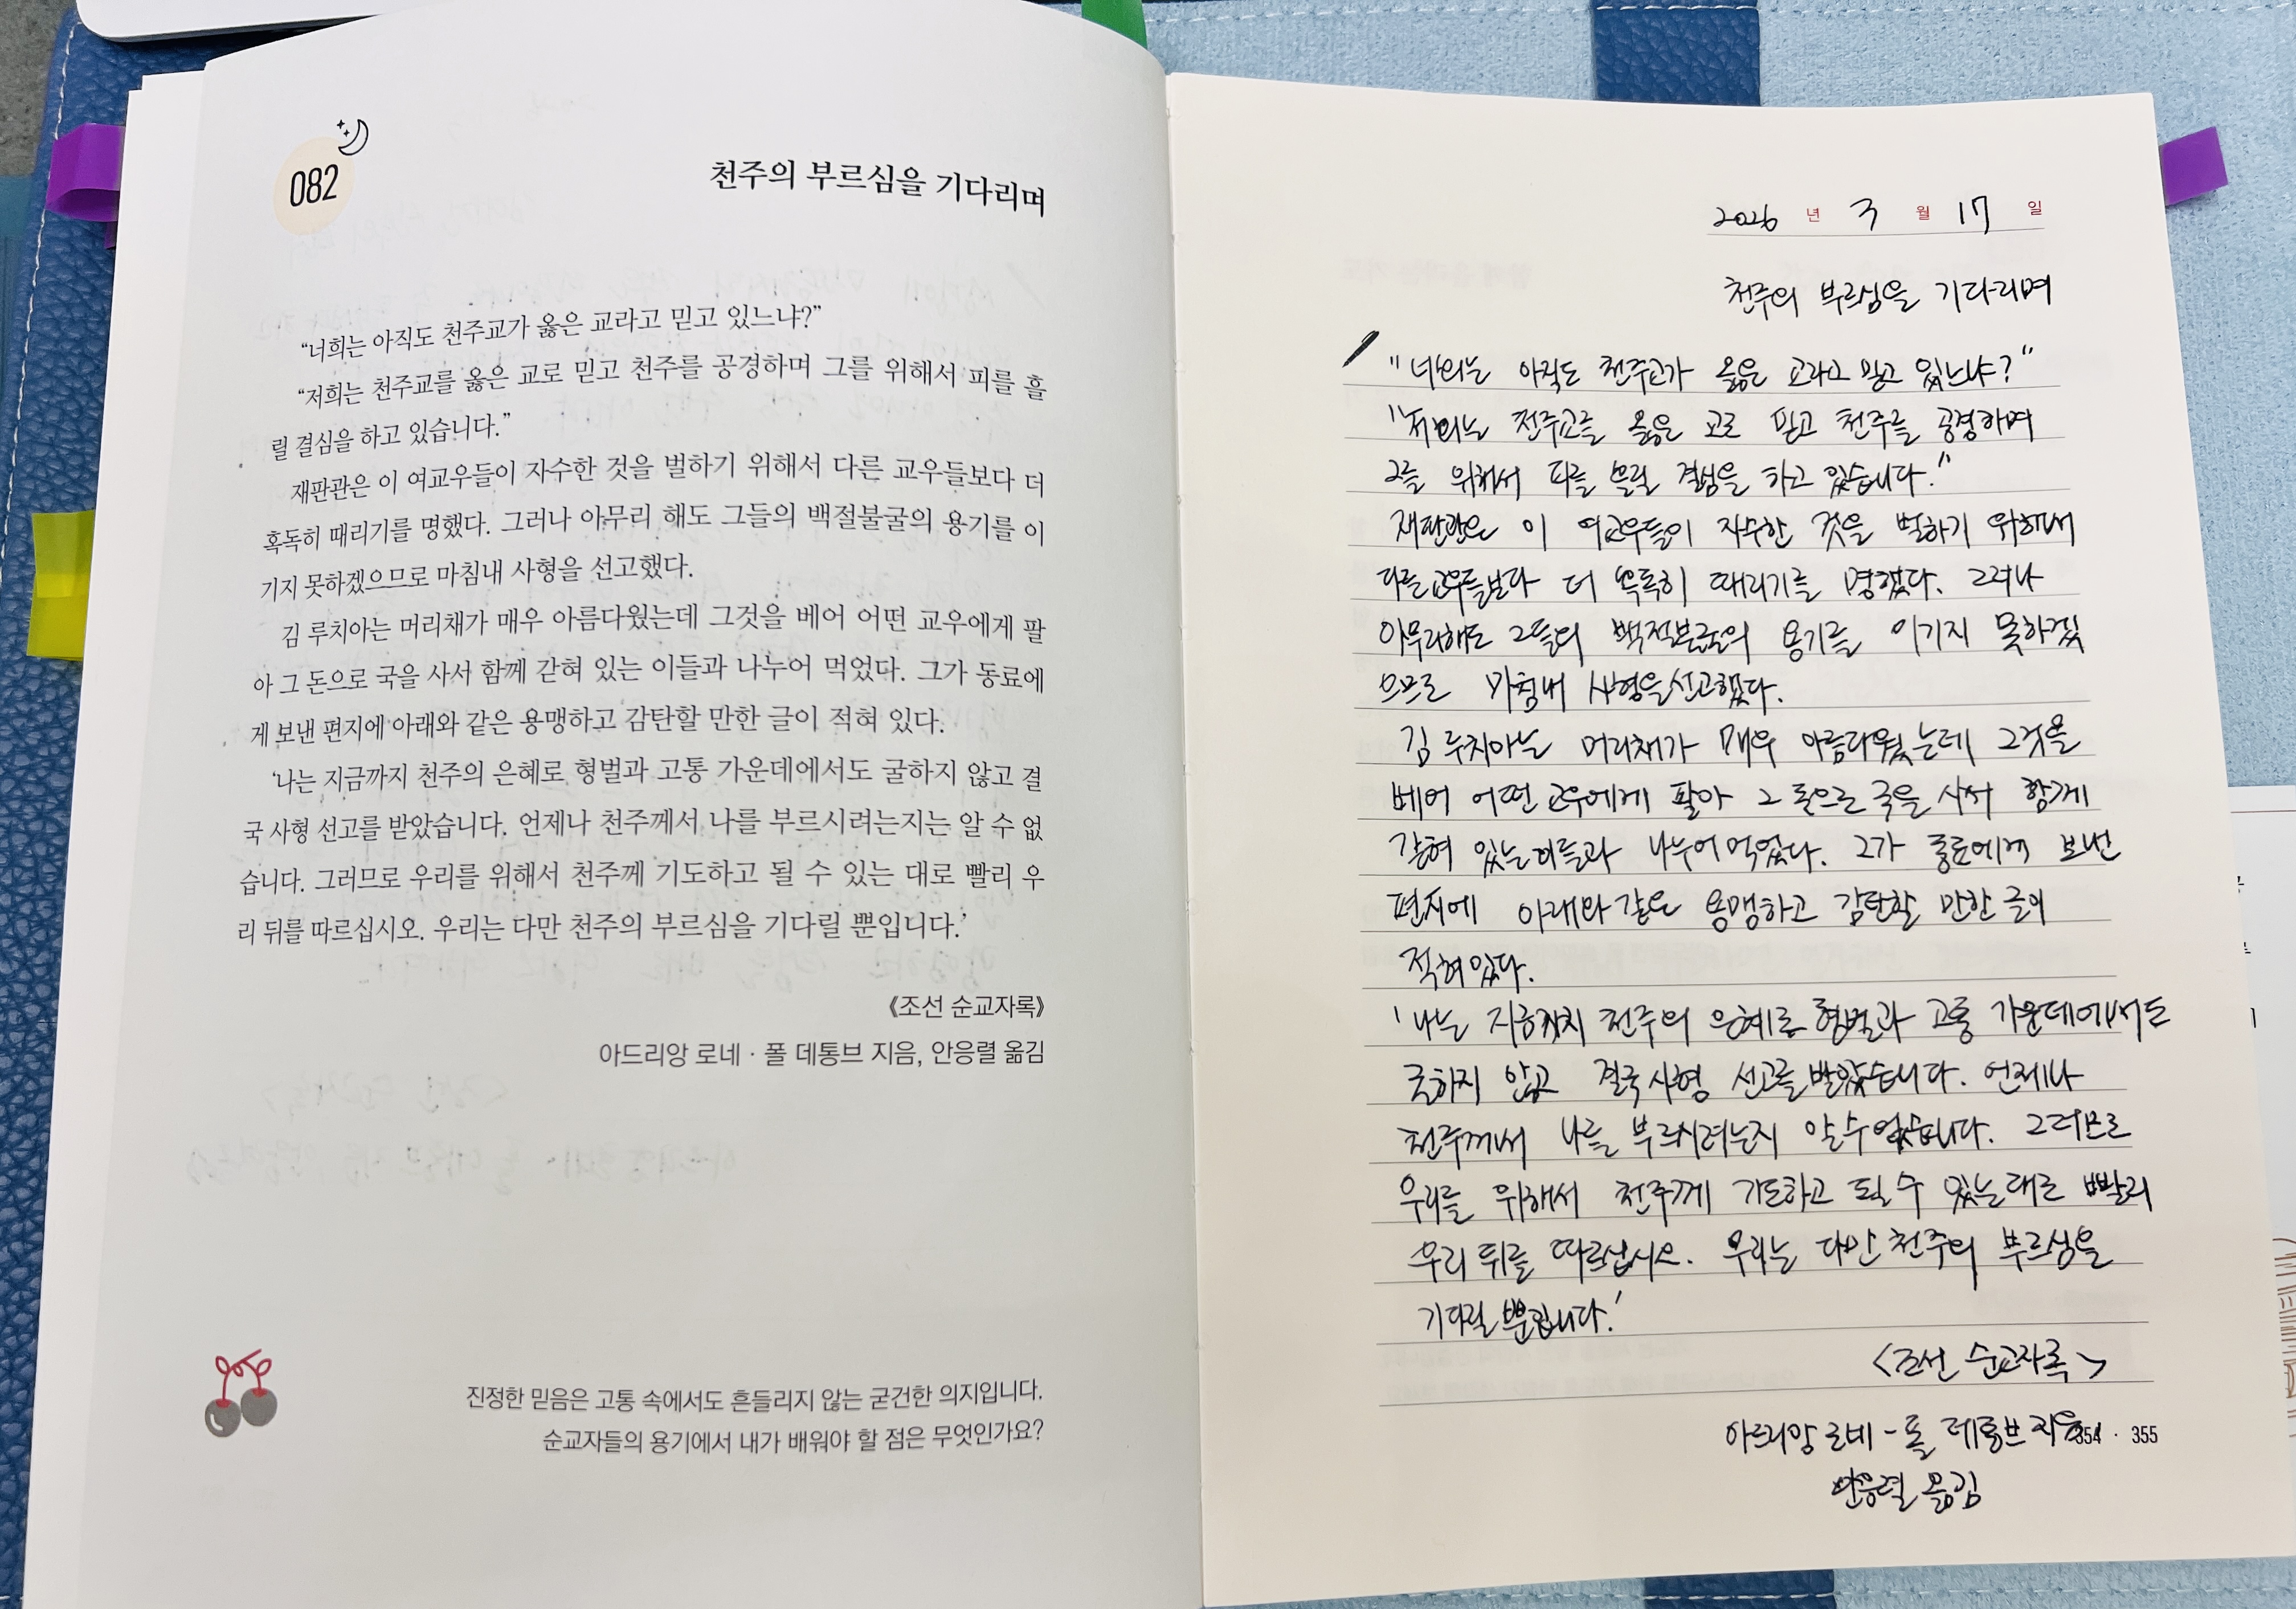 082
천주의 부르심을 기다리며
“너희는 아직도 천주교가 옳은 교라고 믿고 있느냐?”
“저희는 천주교를 옳은 교로 믿고 천주를 공경하며 그를 위해서 피를 흘
릴 결심을 하고 있습니다.”
재판관은 이 여교우들이 자수한 것을 벌하기 위해서 다른 교우들보다 더
혹독히 때리기를 명했다. 그러나 아무리 해도 그들의 백절불굴의 용기를 이
기지 못하겠으므로 마침내 사형을 선고했다.
김 루치아는 머리채가 매우 아름다웠는데 그것을 베어 어떤 교우에게 팔
아 그 돈으로 국을 사서 함께 갇혀 있는 이들과 나누어 먹었다. 그가 동료에
게 보낸 편지에 아래와 같은 용맹하고 감탄할 만한 글이 적혀 있다.
‘나는 지금까지 천주의 은혜로 형벌과 고통 가운데에서도 굴하지 않고 결
국 사형 선고를 받았습니다. 언제나 천주께서 나를 부르시려는지는 알 수 없
습니다. 그러므로 우리를 위해서 천주께 기도하고 될 수 있는 대로 빨리 우
리 뒤를 따르십시오. 우리는 다만 천주의 부르심을 기다릴 뿐입니다.’
《조선 순교자록》
아드리앙 로네 · 폴 데통브 지음, 안응렬 옮김
진정한 믿음은 고통 속에서도 흔들리지 않는 굳건한 의지입니다.
순교자들의 용기에서 내가 배워야 할 점은 무엇인가요?
2026 년 3 월 17 일
천주의 부르심을 기다리며
"너희는 아직도 천주교가 옳은 교라고 믿고 있느냐?"
"저희는 천주교를 옳은 교로 믿고 천주를 공경하며
그를 위해서 피를 흘릴 결심을 하고 있습니다."
재판관은 이 여교우들이 자수한 것을 벌하기 위해서
다른 교우들보다 더 혹독히 때리기를 명했다. 그러나
아무리해도 그들의 백절불굴의 용기를 이기지 못하겠
으므로 마침내 사형을 선고했다.
김 루치아는 머리채가 매우 아름다웠는데 그것을
베어 어떤 교우에게 팔아 그 돈으로 국을 사서 함께
갇혀 있는 이들과 나누어 먹었다. 그가 동료에게 보낸
편지에 아래와 같은 용맹하고 감탄할 만한 글이
적혀 있다.
'나는 지금까지 천주의 은혜로 형벌과 고통 가운데에서도
굴하지 않고 결국 사형 선고를 받았습니다. 언제나
천주께서 나를 부르시려는지 알 수 없습니다. 그러므로
우리를 위해서 천주께 기도하고 될 수 있는 대로 빨리
우리 뒤를 따르십시오. 우리는 다만 천주의 부르심을
기다릴 뿐입니다.'
<조선 순교자록>
아드리앙 로네 - 폴 데통브 지음
354 · 355
안응렬 옮김